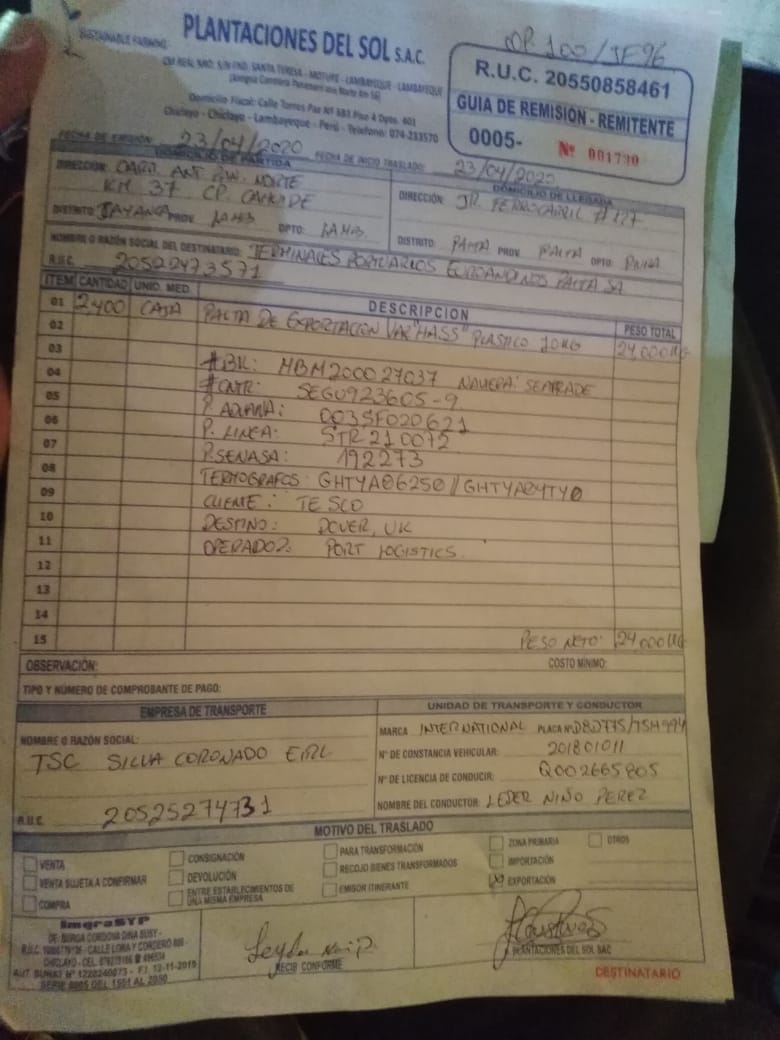 OP. 100/JF96
SUSTAINABLE FARMING
PLANTACIONES DEL SOL S.A.C.
CM REAL NRO. S/N FND. SANTA TERESA - MOTUPE - LAMBAYEQUE - LAMBAYEQUE
(Antigua Carretera Panamericana Norte Km 56)
Domicilio Fiscal: Calle Torres Paz Nº 683 Piso 4 Dpto. 401
Chiclayo - Chiclayo - Lambayeque - Perú - Telefono: 074-233570
R.U.C. 20550858461
GUIA DE REMISIÓN - REMITENTE
0005- Nº 001730
FECHA DE EMISIÓN: 23/04/2020 FECHA DE INICIO TRASLADO: 23/04/2020
DOMICILIO DE PARTIDA
DIRECCIÓN: CARR. ANT. PAN. NORTE
KM 37 CP.
DISTRITO: JAYANCA PROV. LAMB. DPTO: LAMB.
DOMICILIO DE LLEGADA
DIRECCIÓN: JR. FERROCARRIL #127
DISTRITO: PAITA PROV PAITA DPTO: PIURA
NOMBRE O RAZÓN SOCIAL DEL DESTINATARIO: TERMINALES PORTUARIOS EUROANDINOS PAITA SA
R.U.C. 20522473571
ITEM CANTIDAD UNID. MED. DESCRIPCION PESO TOTAL
01 2400 CAJA PALTA DE EXPORTACION VAR "HASS" PLASTICO 10KG 24,000KG
02
03 #BK: HBM200027037 NAVIERA: SEATRADE
04 #CNTR: SEGU923605-9
05 P. ADUANA: 003SF020621
06 P. LINEA: STR210072
07 P.SENASA: 192273
08 TERMOGRAFOS: GHTYA06250//GHTYA04TY0
09 CLIENTE: TESCO
10 DESTINO: DOVER, UK
11 OPERADOR: PORT LOGISTICS.
12
13
14
15 PESO NETO: 24,000KG
OBSERVACIÓN: COSTO MÍNIMO:
TIPO Y NÚMERO DE COMPROBANTE DE PAGO:
EMPRESA DE TRANSPORTE
NOMBRE O RAZÓN SOCIAL:
TSC SILVA CORONADO EIRL
R.U.C. 20525274731
UNIDAD DE TRANSPORTE Y CONDUCTOR
MARCA INTERNATIONAL PLACA Nº
N° DE CONSTANCIA VEHICULAR: 201801011
N° DE LICENCIA DE CONDUCIR: Q002665805
NOMBRE DEL CONDUCTOR: LEDER NIÑO PEREZ
MOTIVO DEL TRASLADO
VENTA CONSIGNACIÓN PARA TRANSFORMACIÓN ZONA PRIMARIA OTROS
VENTA SUJETA A CONFIRMAR DEVOLUCIÓN RECOJO BIENES TRANSFORMADOS IMPORTACIÓN
COMPRA ENTRE ESTABLECIMIENTOS DE EMISOR ITINERANTE X EXPORTACIÓN
UNA MISMA EMPRESA
ImgraSYP
DE: BURGA CORDOVA DINA SUSY -
CALLE LORA Y CORDERO
CHICLAYO
AUT. SUNAT Nº 1220240073 - F.I. 12-11-2019
SERIE 0005 DEL 1501 AL 2000
RECIBI CONFORME
PLANTACIONES DEL SOL SAC
DESTINATARIO